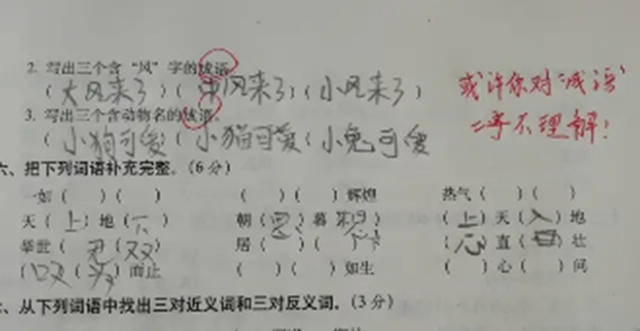 2. 写出三个含“风”字的成语。
(大风来了)(中风来了)(小风来了)
或许你对“成语”
二字不理解!
3. 写出三个含动物名的成语。
(小狗可爱(小猫可爱(小兔可爱
六、把下列词语补充完整。(6分)
一如( )( ) ( )( )辉煌 热气( )( )
天(上)地(下) 朝(思)暮(想) (上)天(入)地
举世(无(双) 居( )( ) ( )直( )壮
( )( )而止 ( )( )如生 ( )心( )问
、从下列词语中找出三对近义词和三对反义词。(3分)